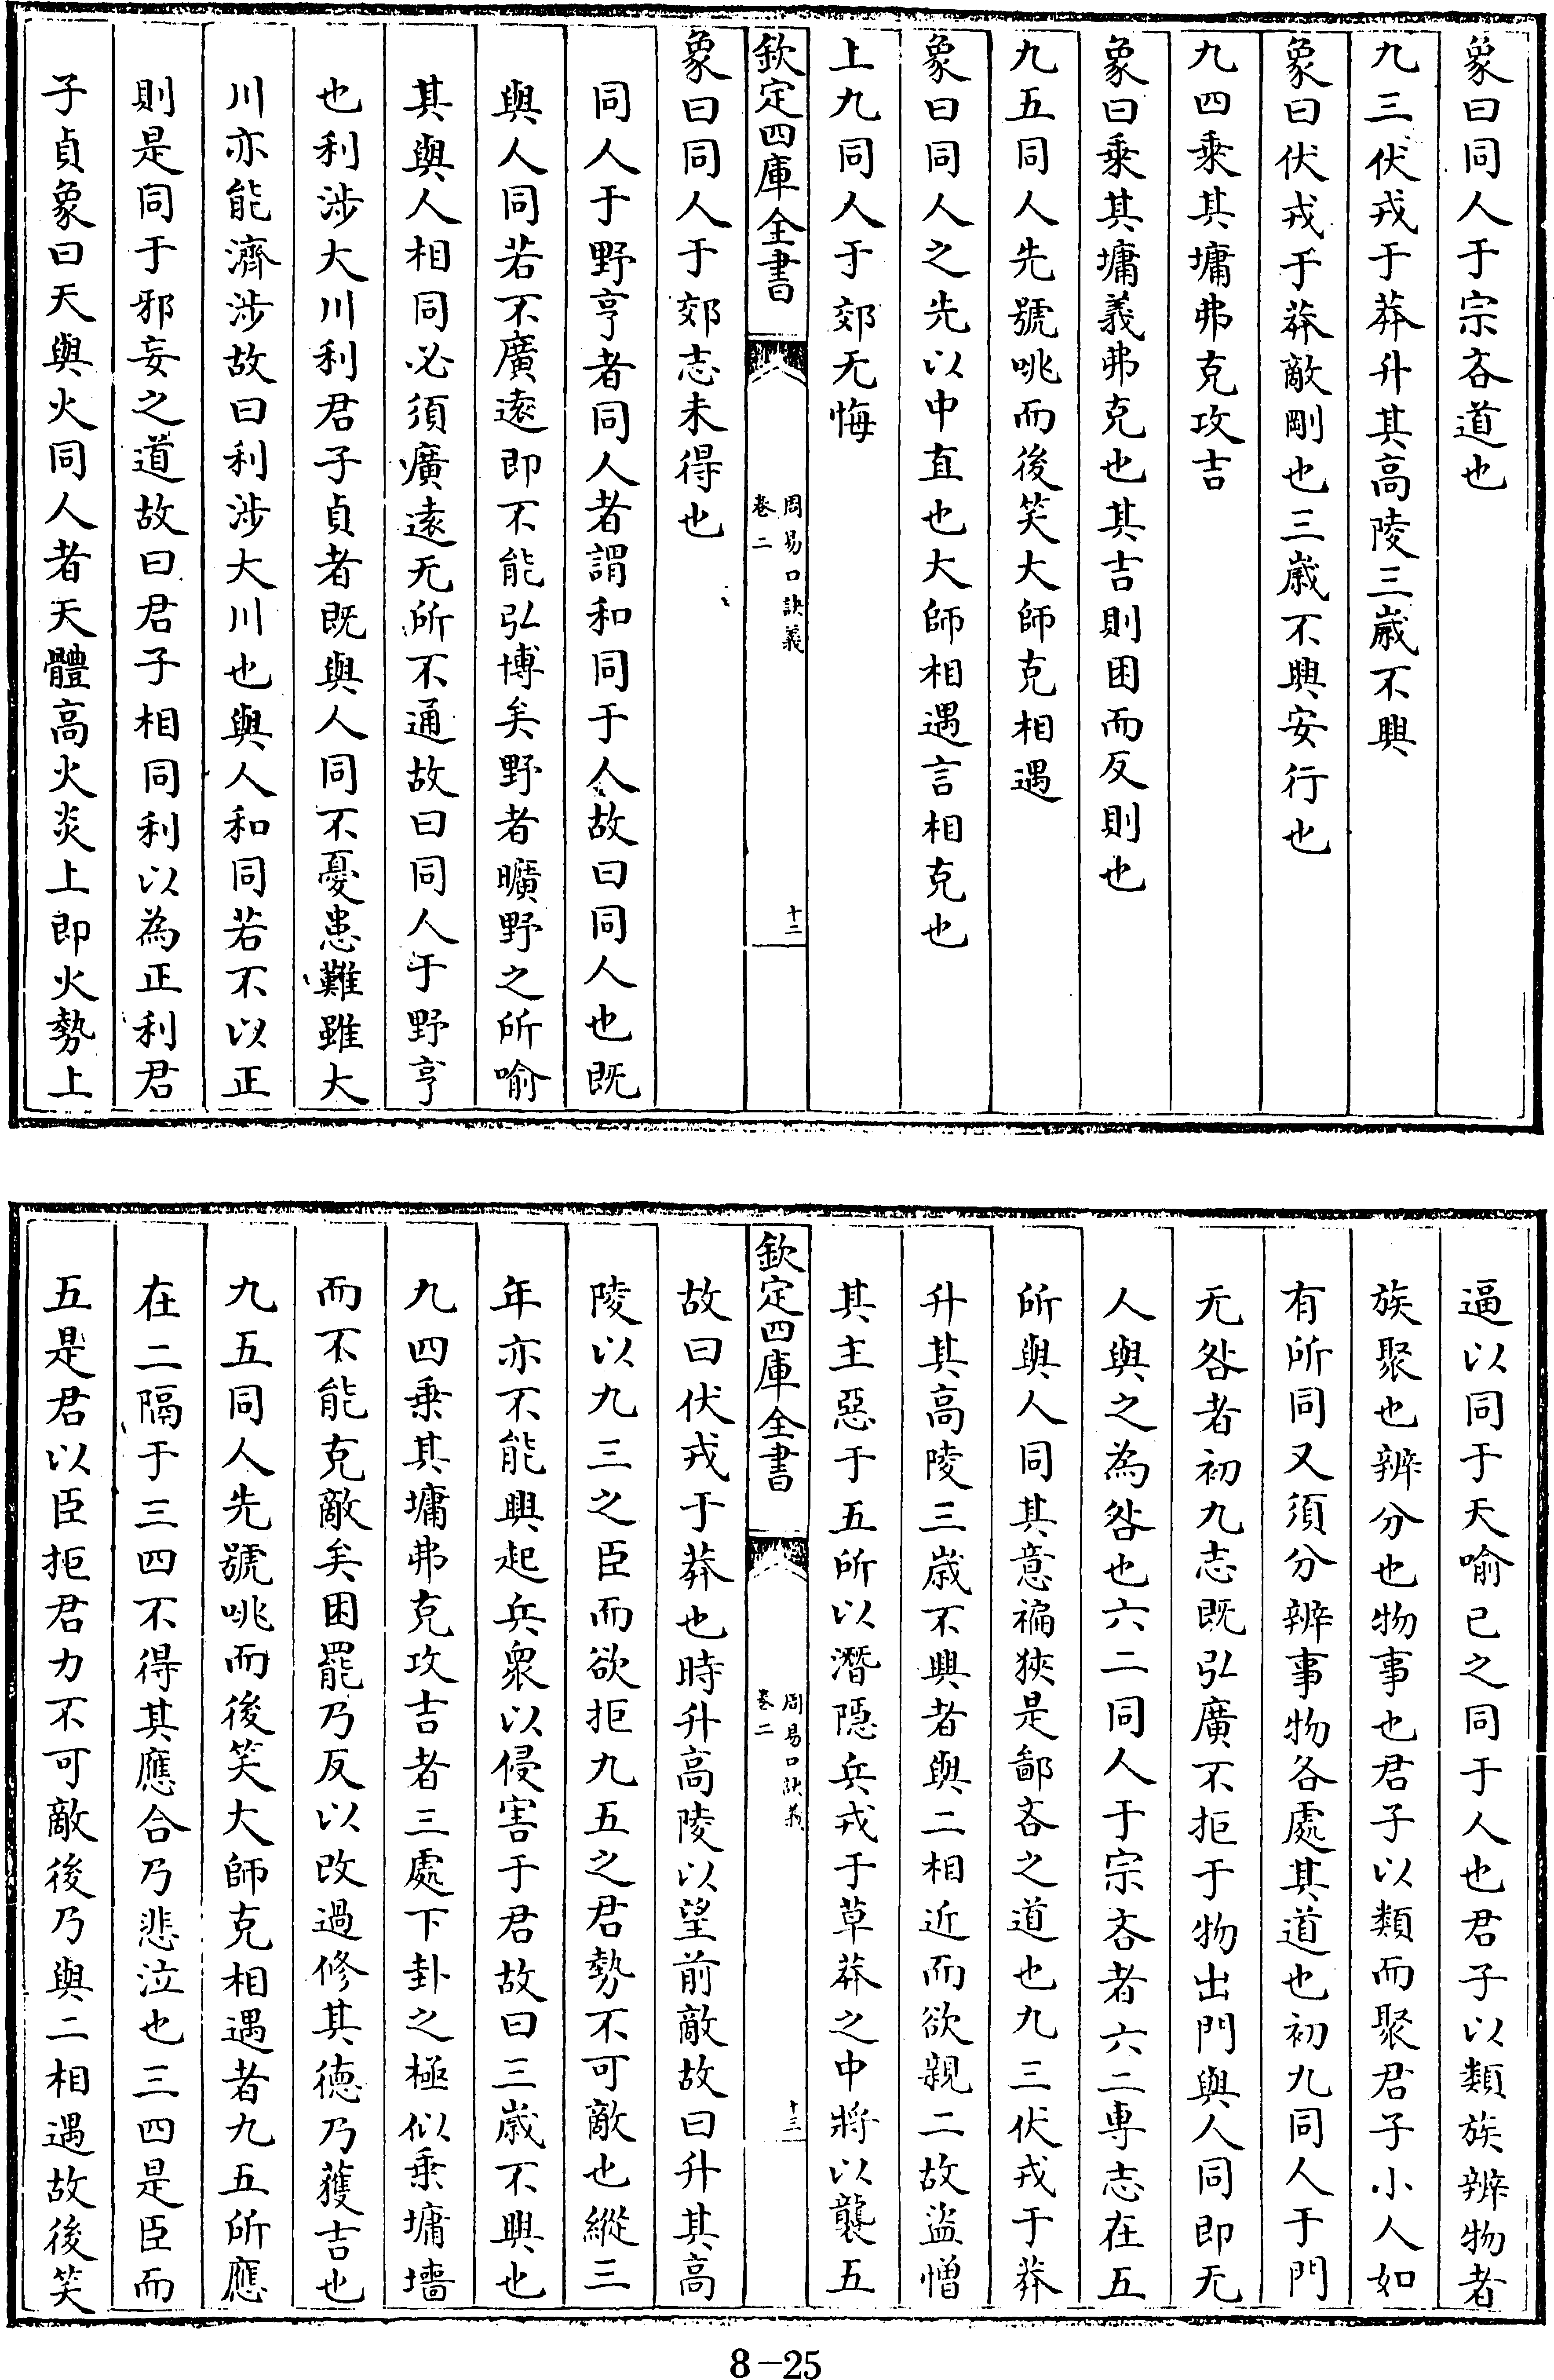 象曰同人于宗吝道也
九三伏戎于莽升其高陵三歲不興
象曰伏戎于莽敵剛也三歲不興安行也
九四乗其墉弗克攻吉
象曰乗其墉義弗克也其吉則困而反則也
九五同人先號咷而後笑大師克相遇
象曰同人之先以中直也大師相遇言相克也
上九同人于郊无悔
欽定四庫全書
周易口訣義
卷二
十二
象曰同人于郊志未得也
同人于野亨者同人者謂和同于人故曰同人也既
與人同若不廣逺即不能弘博矣野者曠野之所喻
其與人相同必須廣逺无所不通故曰同人于野亨
也利涉大川利君子貞者既與人同不憂患難雖大
川亦能濟涉故曰利涉大川也與人和同若不以正
則是同于邪妄之道故曰君子相同利以為正利君
子貞象曰天與火同人者天體高火炎上即火勢上
逼以同于天喻已之同于人也君子以類族辨物者
族聚也辨分也物事也君子以類而聚君子小人如
有所同又須分辨事物各處其道也初九同人于門
无咎者初九志既弘廣不拒于物出門與人同即无
人與之為咎也六二同人于宗吝者六二専志在五
所與人同其意褊狹是鄙吝之道也九三伏戎于莽
升其高陵三歲不興者與二相近而欲親二故盜憎
其主惡于五所以潛隱兵戎于草莽之中將以襲五
欽定四庫全書
周易口訣義
卷二
十三
故曰伏戎于莽也時升高陵以望前敵故曰升其高
陵以九三之臣而欲拒九五之君勢不可敵也縱三
年亦不能興起兵衆以侵害于君故曰三歲不興也
九四乗其墉弗克攻吉者三處下卦之極似乗墉墻
而不能克敵矣困罷乃反以改過修其徳乃獲吉也
九五同人先號咷而後笑大師克相遇者九五所應
在二隔于三四不得其應合乃悲泣也三四是臣而
五是君以臣拒君力不可敵後乃與二相遇故後笑
8-25